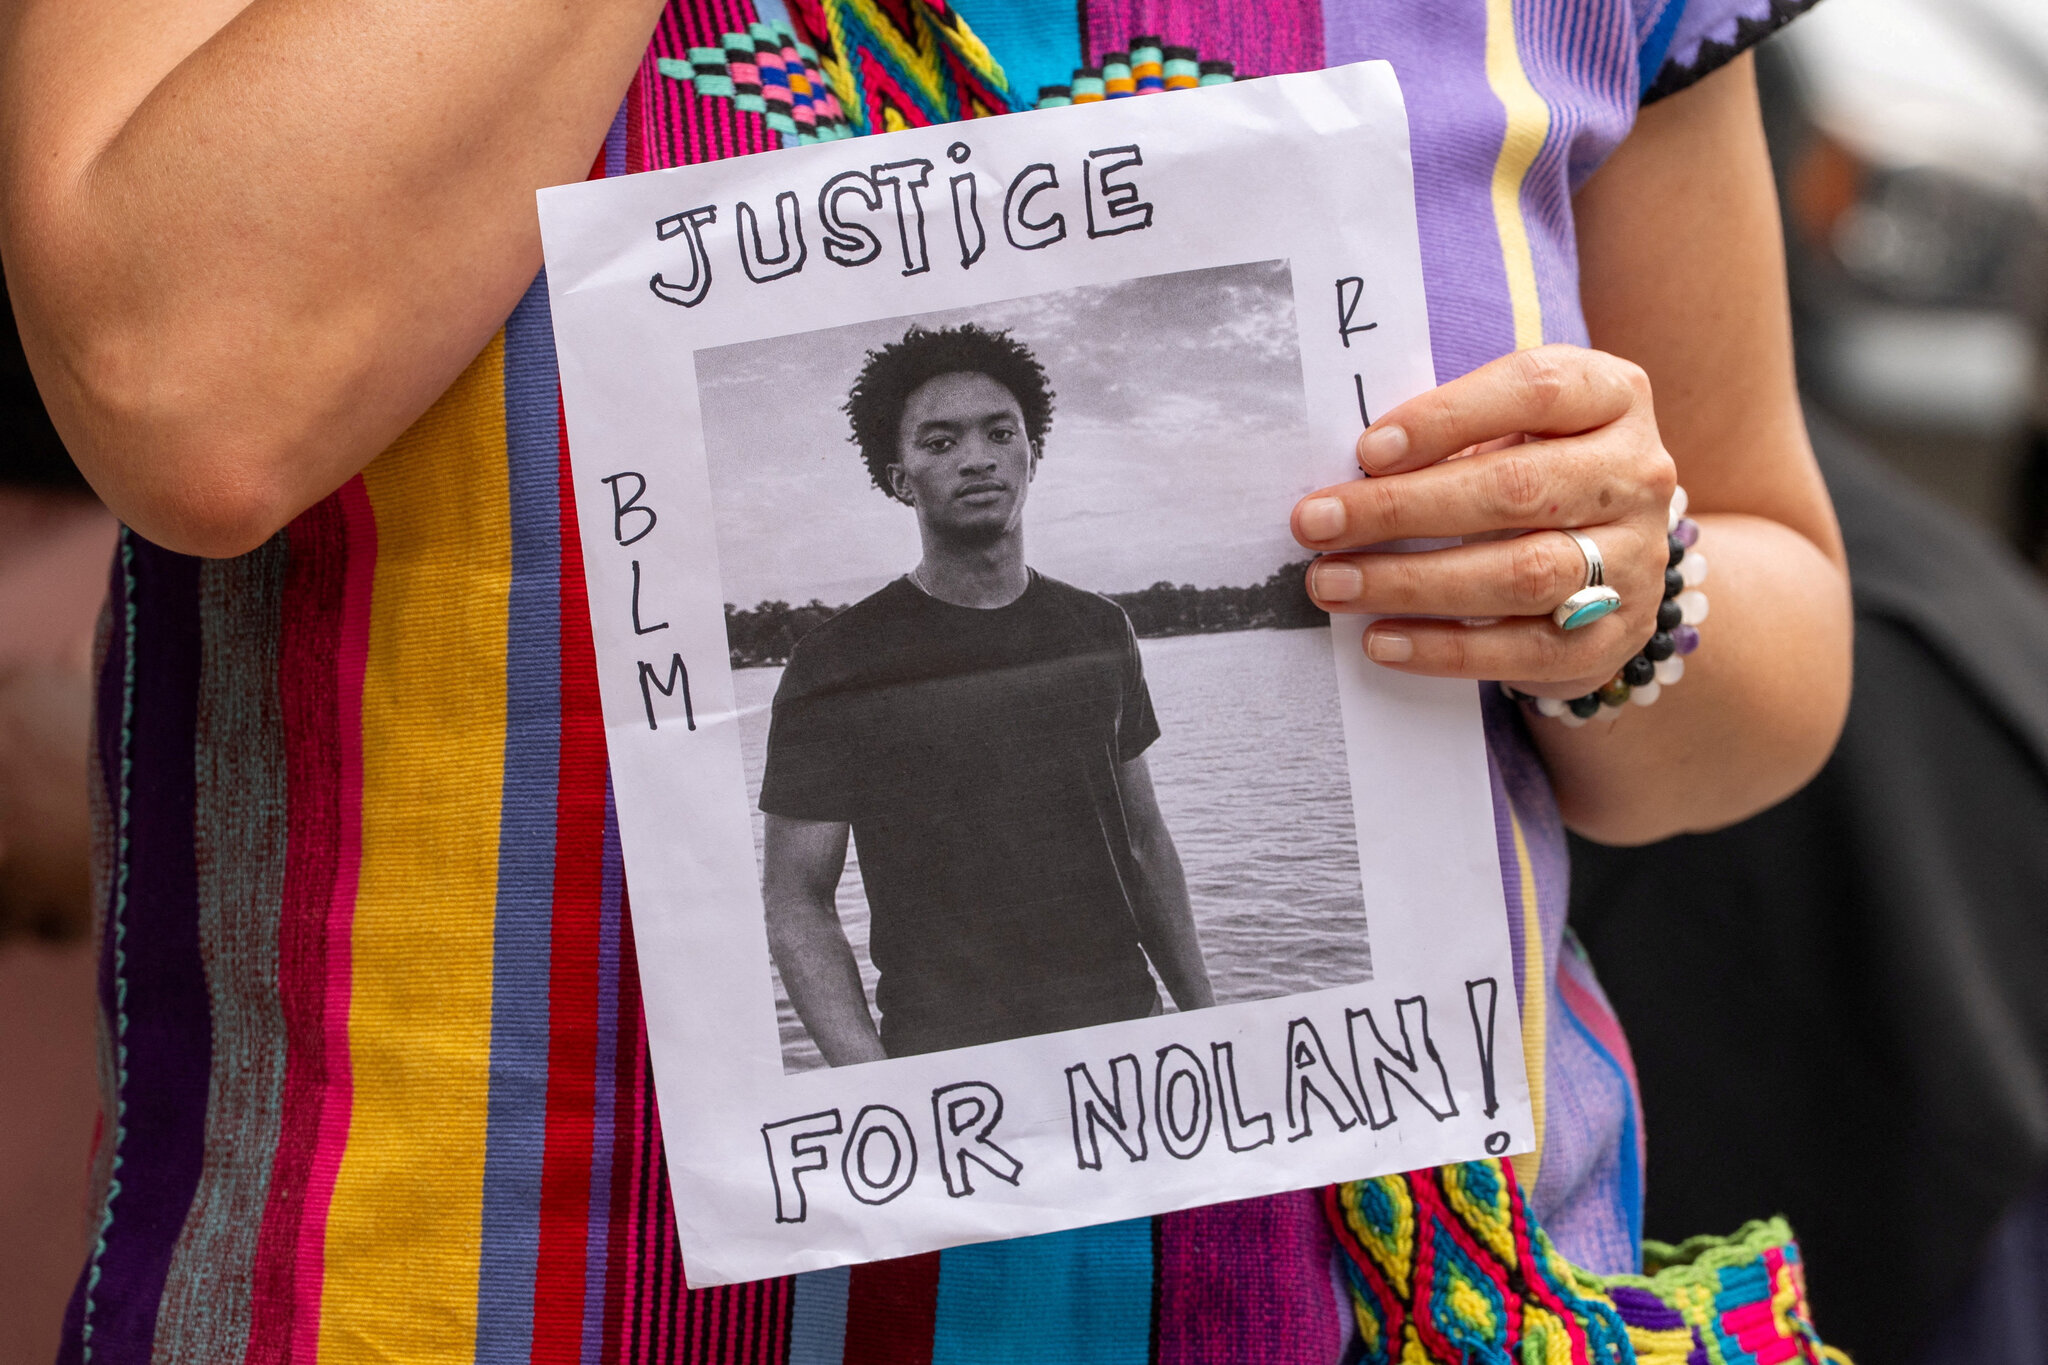 JUSTiCE
BLM
R
FOR NOLAN!